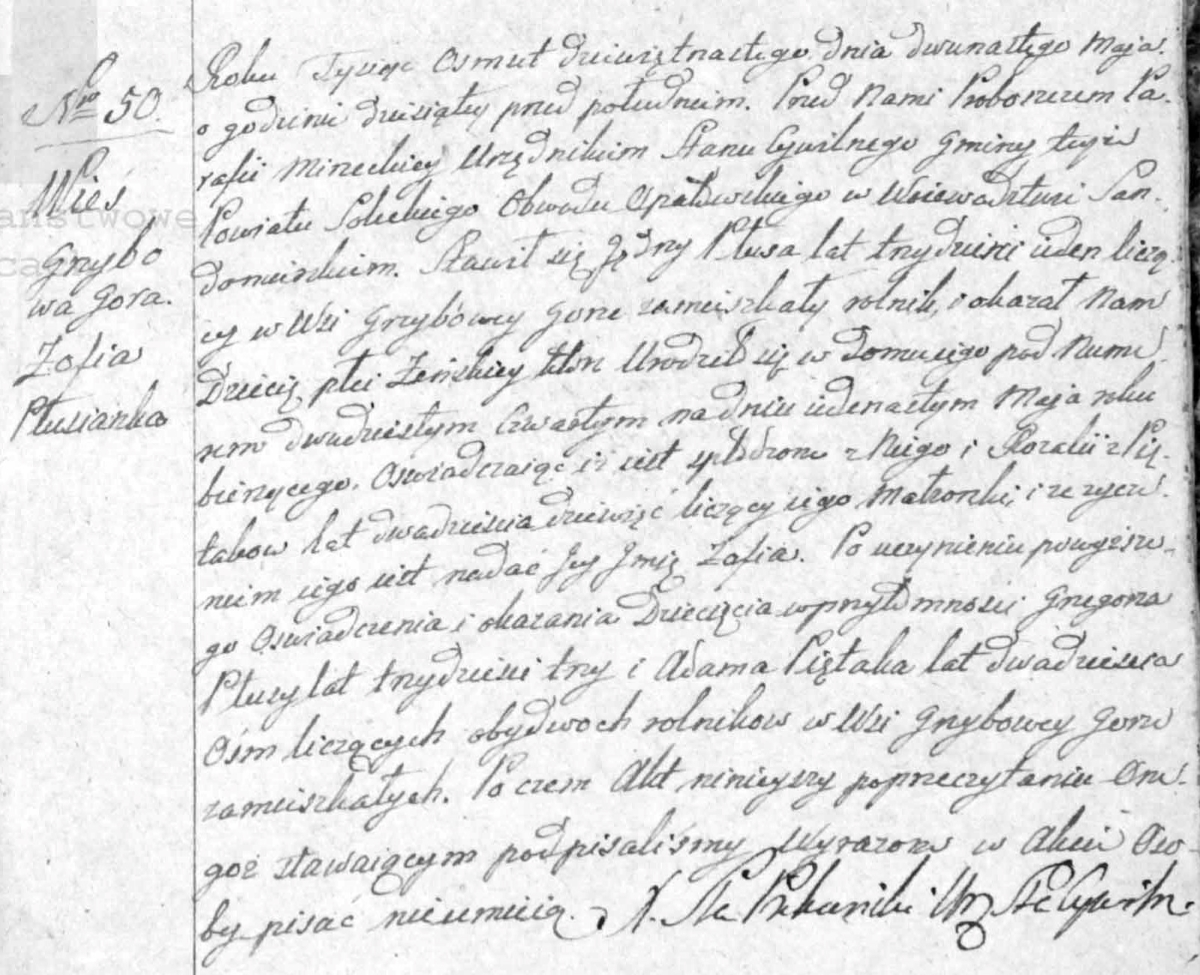 Nro 50.
Wieś
Grzybo
wa Gora.
Zofia
Plusianka
Roku Tysiąc Osmset dziewiętnastego dnia dwunastego Maja.
o godzinie dziesiątey przed południem. Przed Nami Proboszczem Pa-
rafii Mireckiey Urzędnikiem Stanu Cywilnego Gminy
Powiatu Soleckiego Obwodu Opatowskiego w Woiewodztwie San-
domirskim. Stawił się Jędrzy Plusa lat trzydzieści ieden liczą-
cy w Wsi Grzybowey Gorze zamieszkały rolnik, i okazał Nam
Dziecię płci Żeńskiey które Urodziło się w Domu iego pod Nume-
rem dwudziestym Czwartym na dniu iedenastym Maja roku
bieżącego. Oswiadczaiąc iż iest spłodzone z Niego i Rozalii z Pię-
takow lat dwadzieścia dziewięć liczącey iego Małżonki, i że życze-
niem iego iest nadać Jey Jmię Zofia. Po uczynieniu powyższe-
go Oświadczenia i okazania Dziecięcia w przytomności Grzegorza
Plusy lat trzydzieści trzy i Adama Piętaka lat dwadzieścia
Ośm liczących obydwoch rolnikow w Wsi Grzybowey Gorze
zamieszkałych. Po czem Akt ninieyszy po przeczytaniu One-
goż stawaiącym podpisaliśmy Wyrażone w Akcie Oso-
by pisać nieumieią. X. Urz. St. Cywiln.
aństwowe